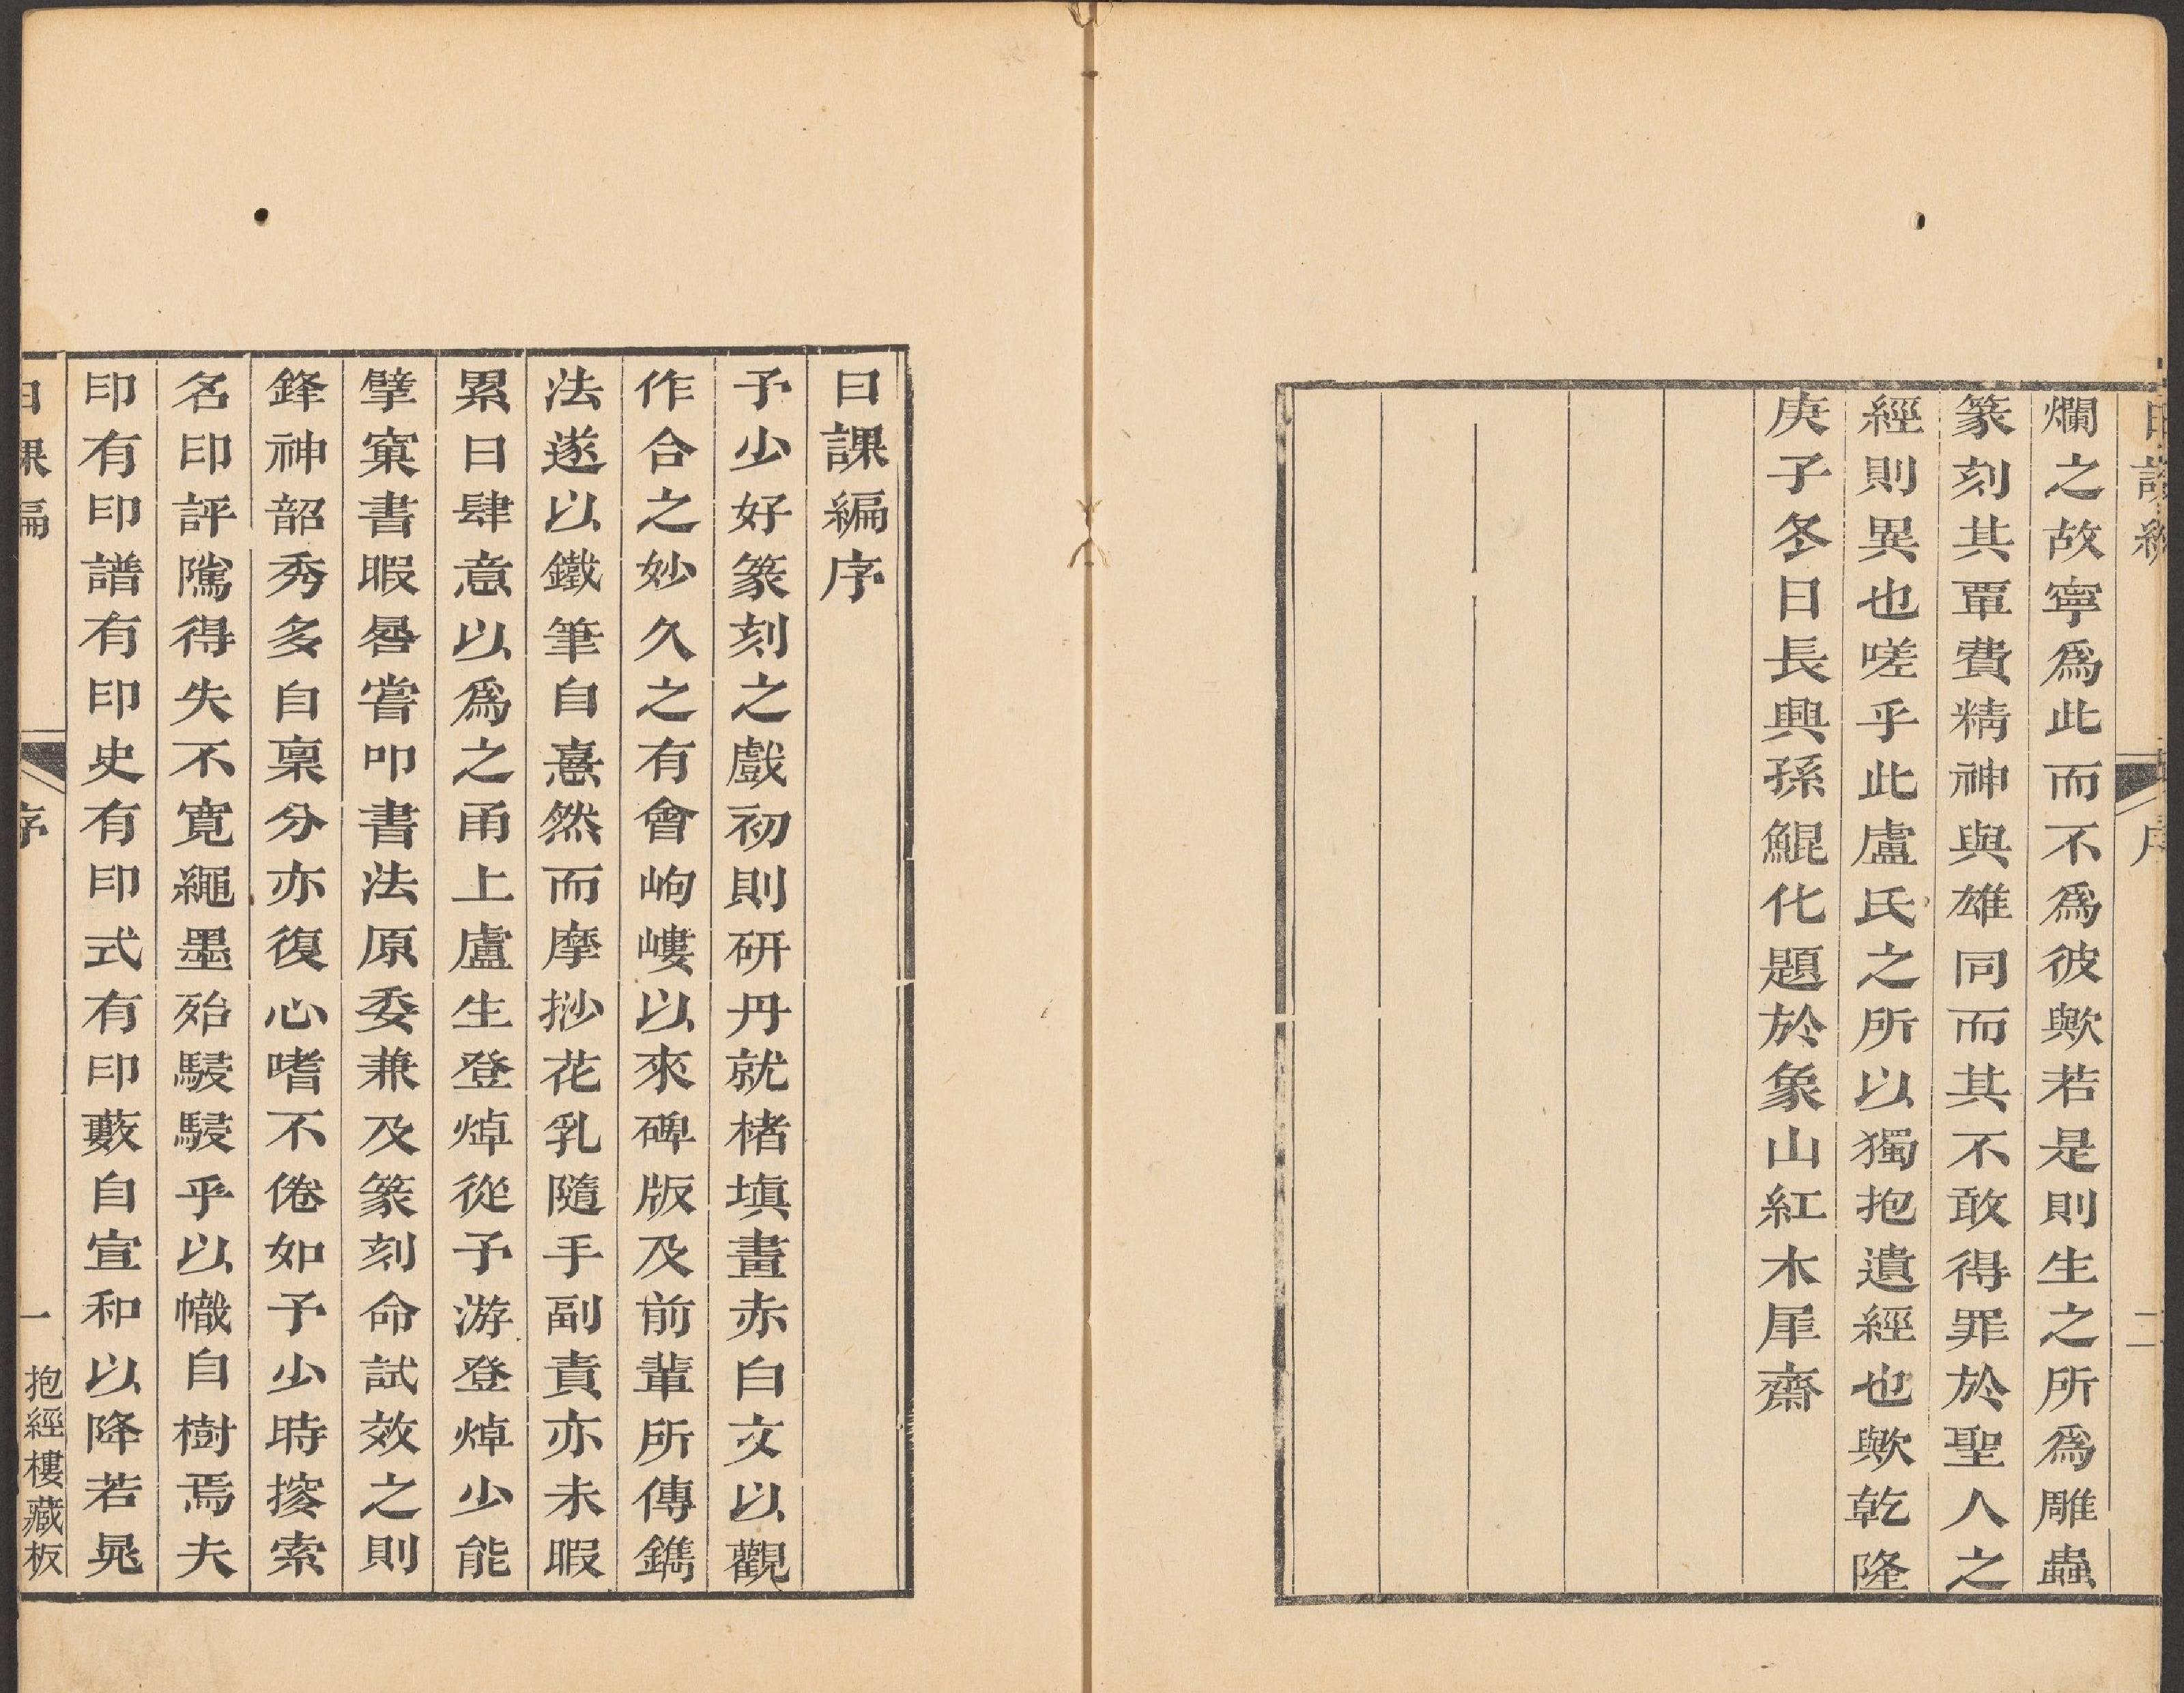 爛之故寧爲此而不爲彼歟若是則生之所爲雕蟲
篆刻其覃費精神與雄同而其不敢得罪於聖人之
經則異也嗟乎此盧氏之所以獨抱遺經也歟乾隆
庚子冬日長興孫鯤化題於象山紅木犀齋
二
日課編序
予少好篆刻之戲初則研丹就楮填畫赤白文以觀
作合之妙久之有會岣嶁以來碑版及前輩所傳鐫
法遂以鐵筆自憙然而摩挱花乳隨手副責亦未暇
累日肆意以爲之甬上盧生登焯從予游登焯少能
擘窠書暇晷嘗叩書法原委兼及篆刻命試效之則
鋒神韶秀多自稟分亦復心嗜不倦如予少時搜索
名印評隲得失不寬繩墨殆駸駸乎以幟自樹焉夫
印有印譜有印史有印式有印藪自宣和以降若晁
日課編
序
一
抱經樓藏板